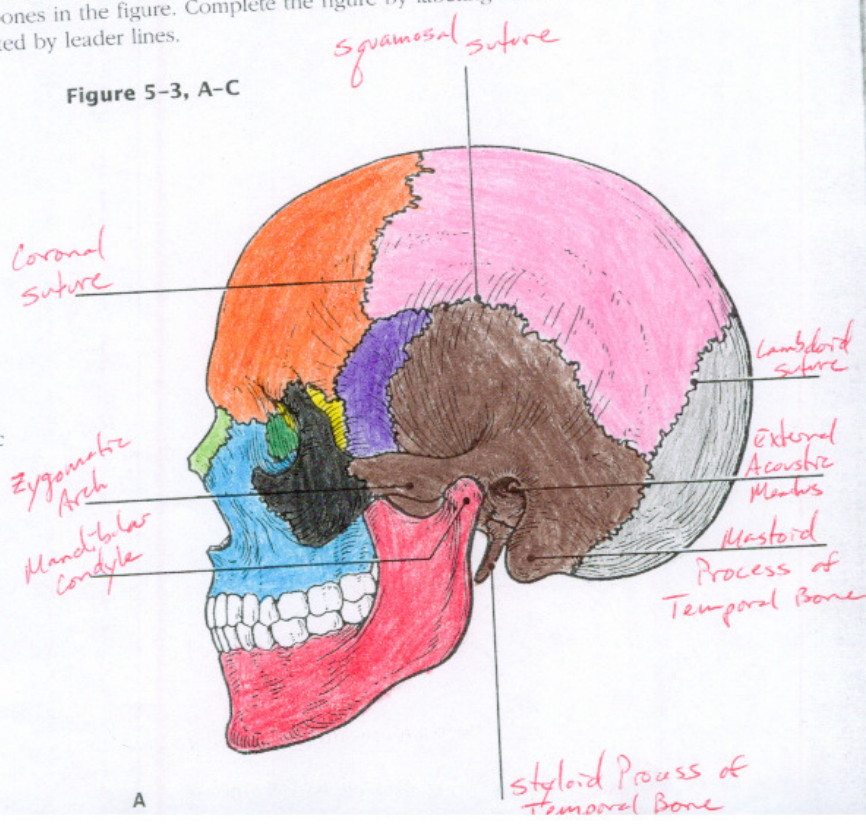 ones in the figure. Complete the figure by
ted by leader lines.
Figure 5-3, A-C
Squamosal
suture
Coronal
suture
Lambdoid
suture
External
Acoustic
Meatus
Zygomatic
Arch
Mandibular
condyle
Mastoid
Process of
Temporal Bone
styloid Process of
Temporal Bone
A